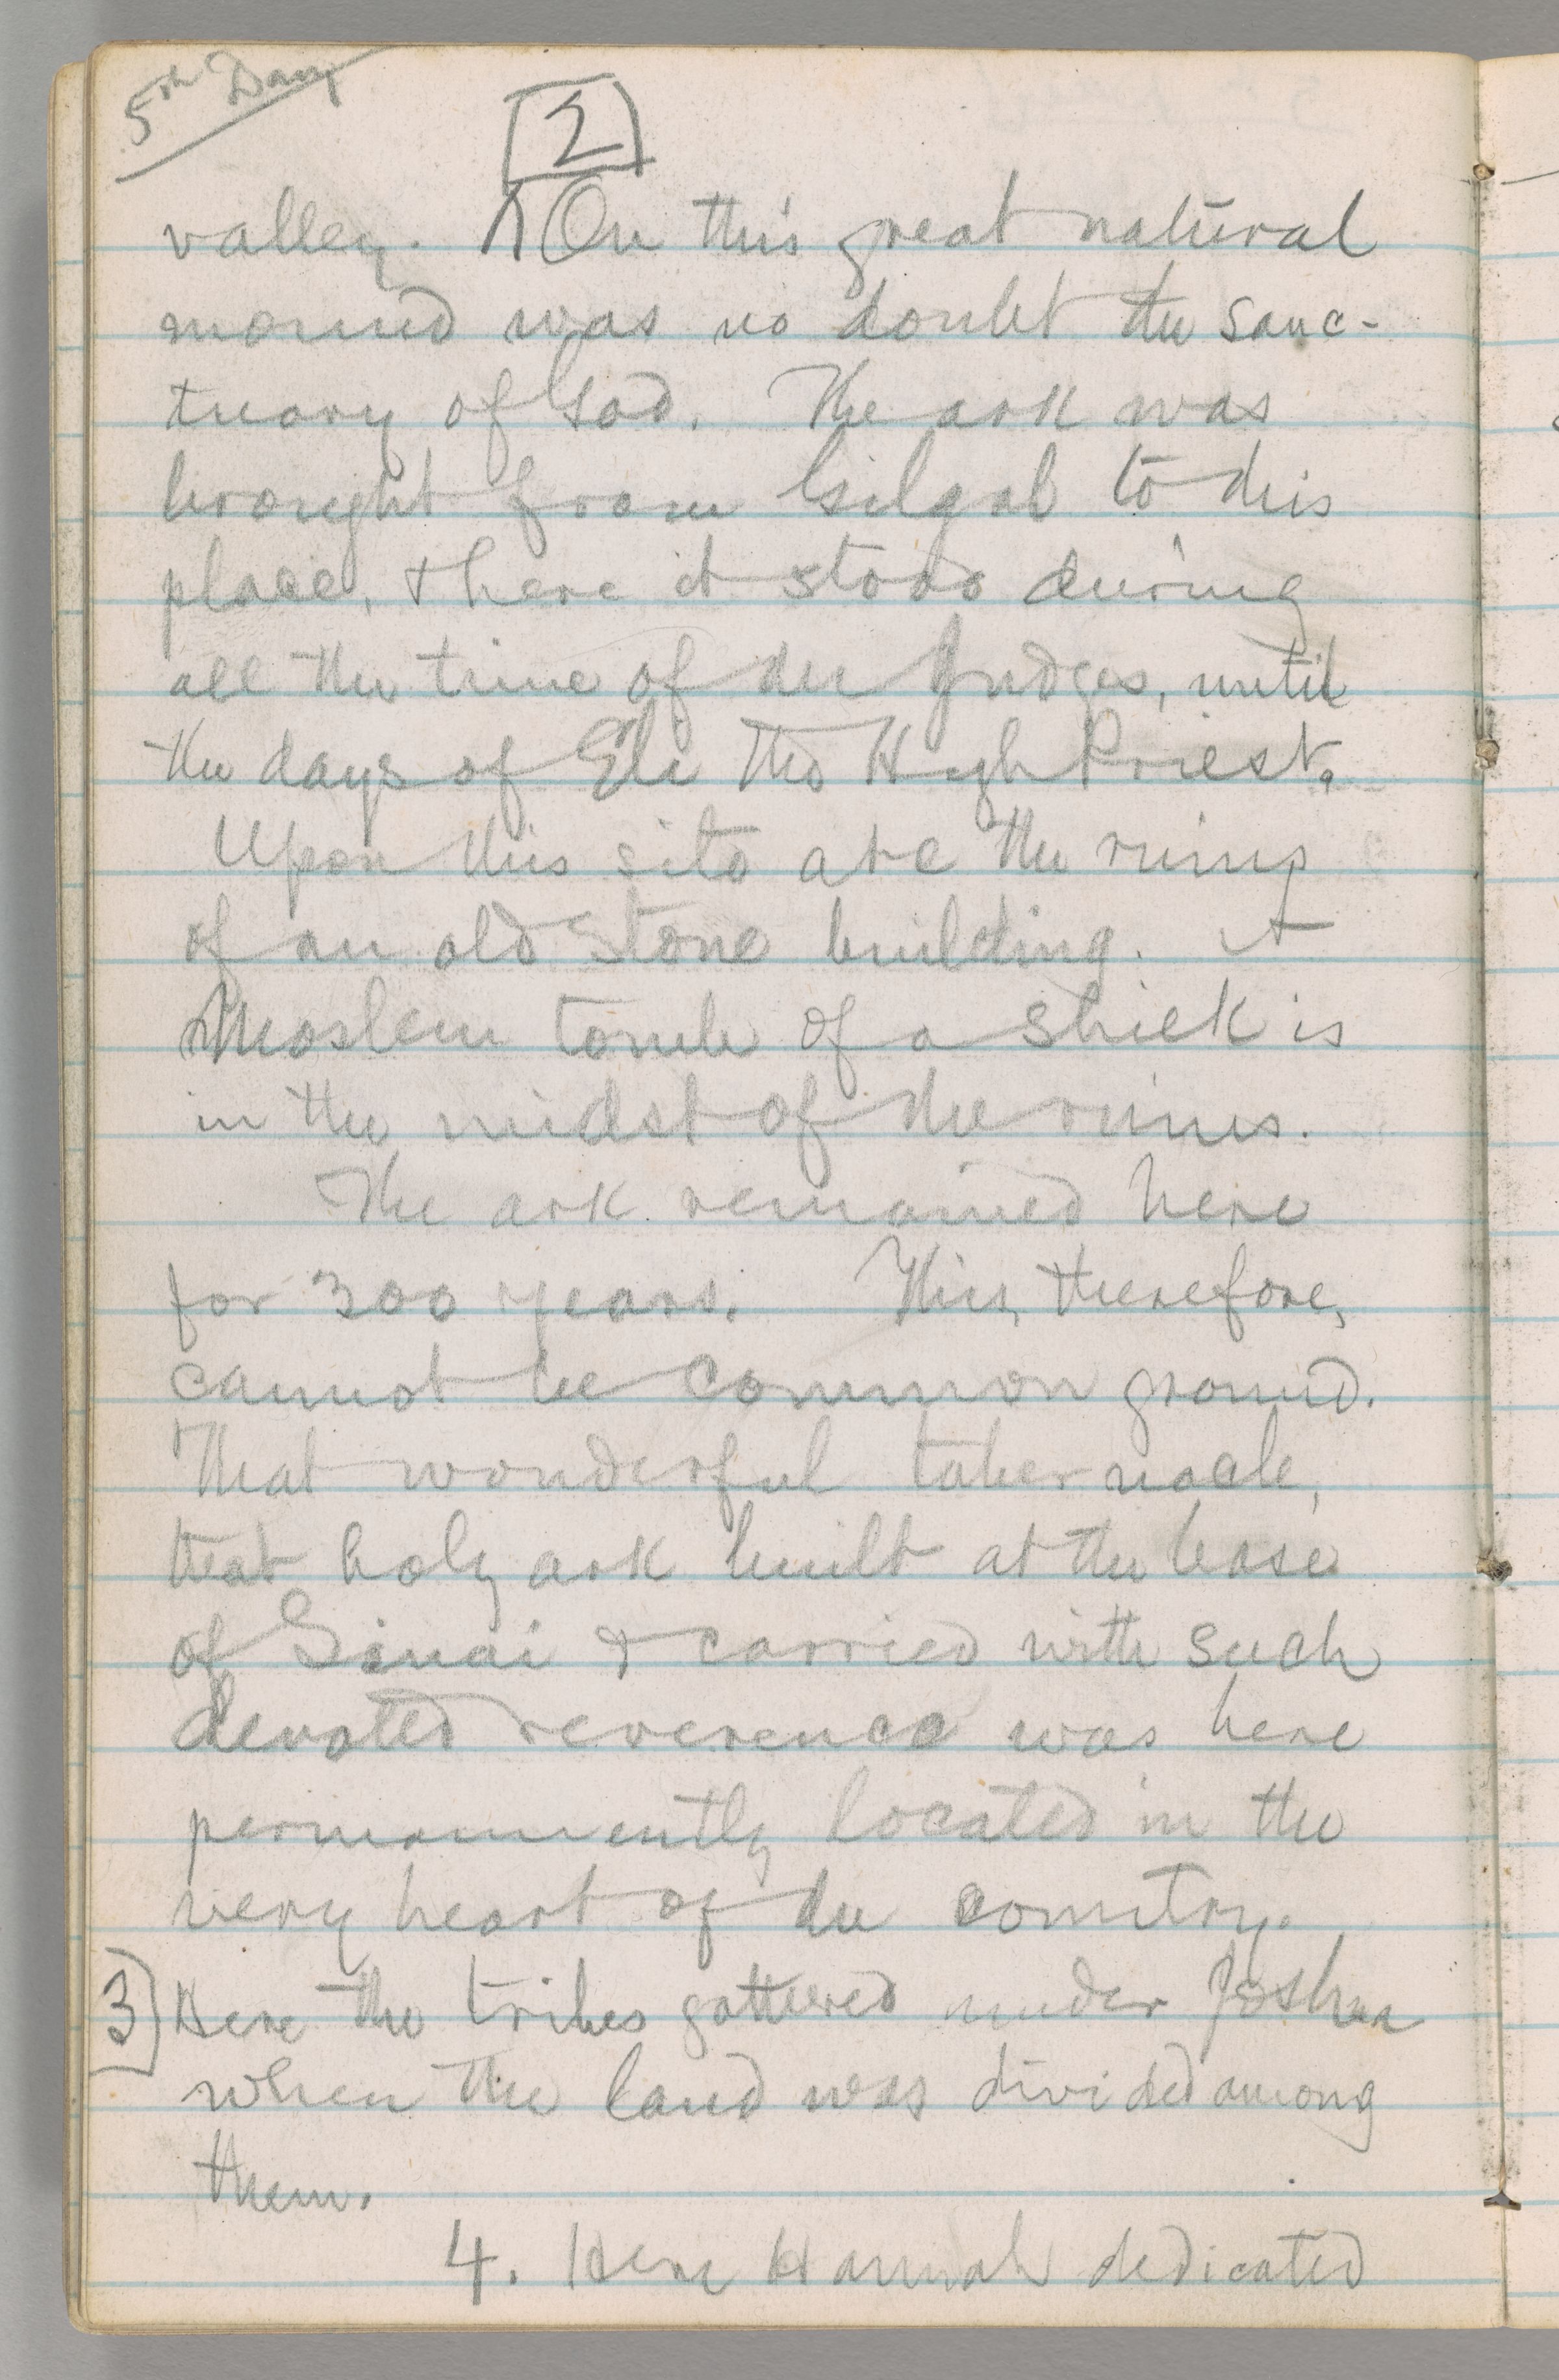 5th Day
2
valley. On this great natural
mound was no doubt the sanc-
tuary of God. The ark was
brought from Gilgal to this
place, & here it stood during
all the time of the Judges, until
the days of Eli the High Priest.
Upon this site are the ruins
of an old stone building. A
Moslem tomb of a shiek is
in the midst of the ruins.
The ark remained here
for 300 years. This, therefore,
cannot be common ground.
That wonderful tabernacle,
that holy ark built at the base
of Sinai & carried with such
devoted reverence was here
permanently located in the
very heart of the country.
3 Here the tribes gathered under Joshua
when the land was divided among
them.
4. Here Hannah dedicated